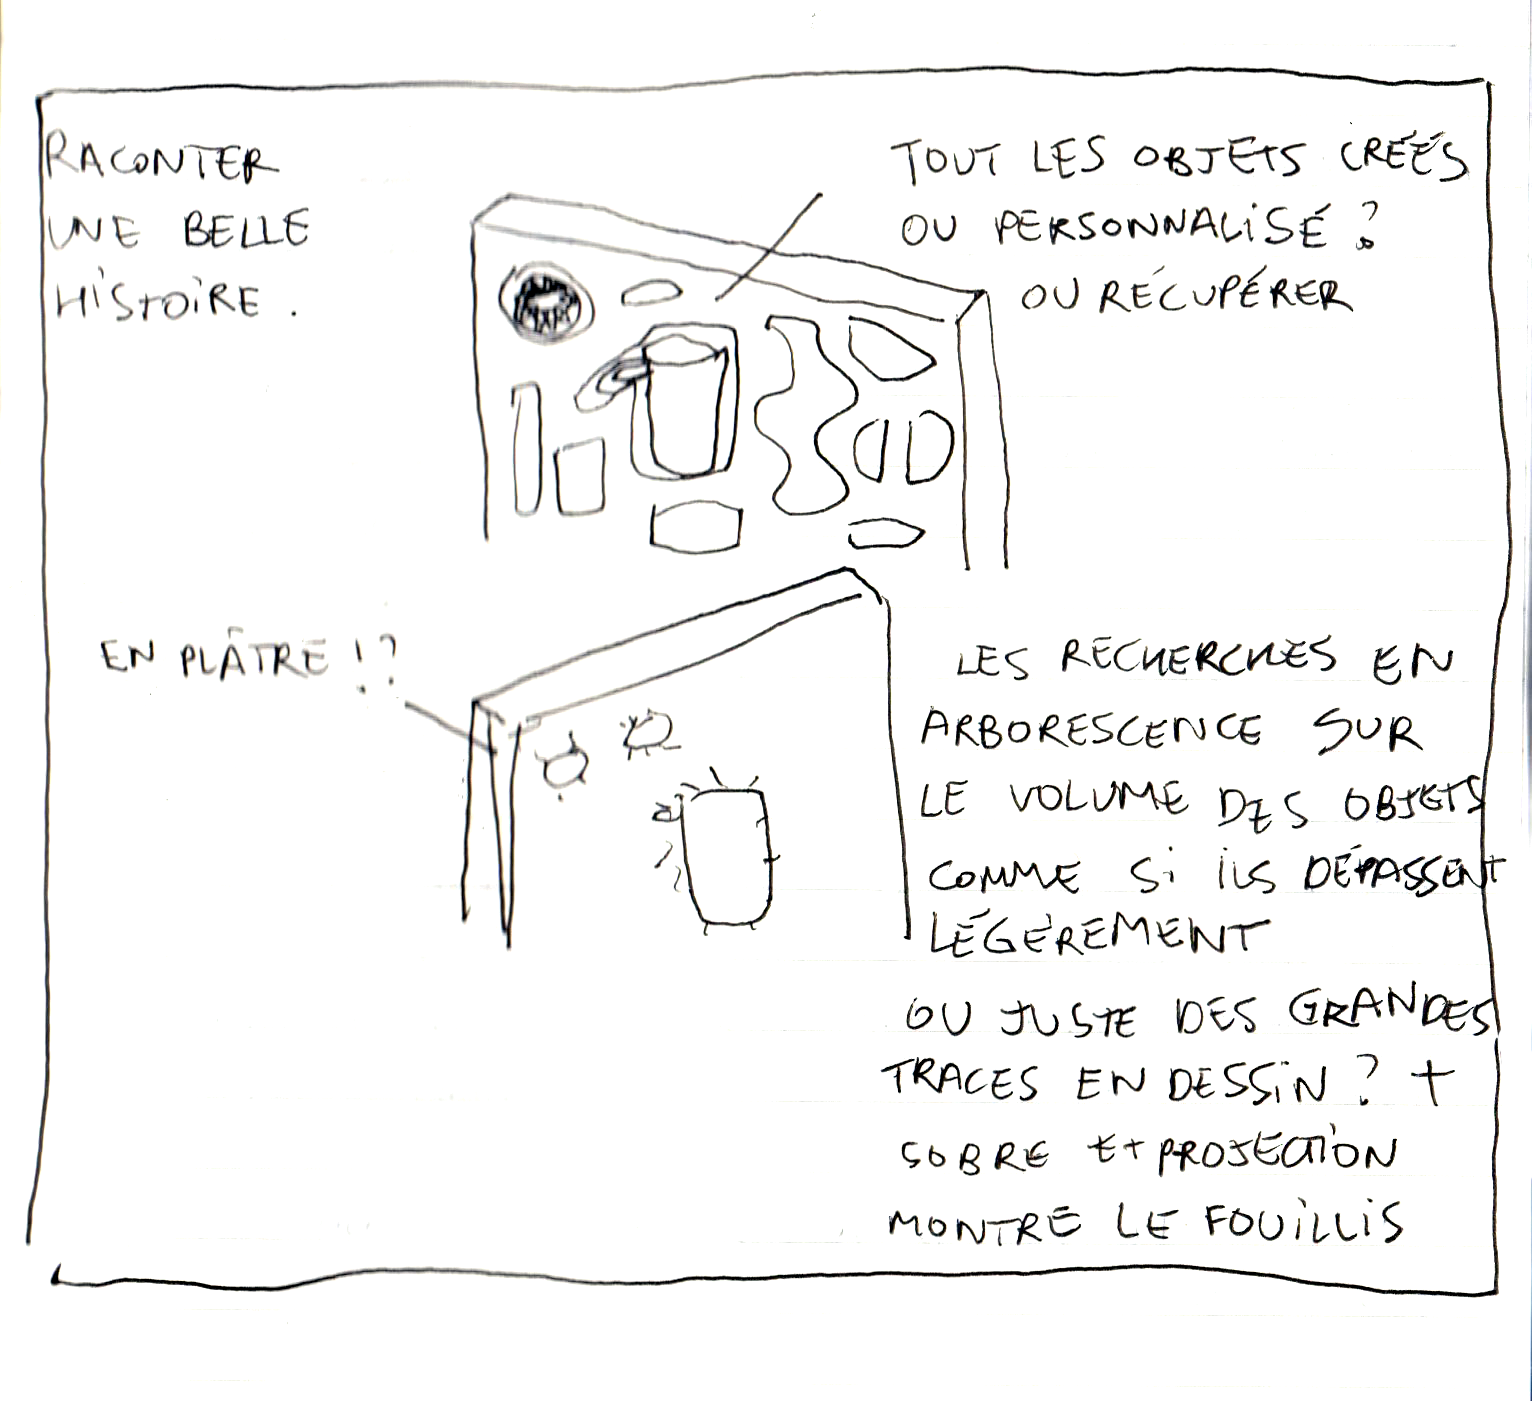 RACONTER
UNE BELLE
HISTOIRE.
TOUT LES OBJETS CRÉÉS
OU PERSONNALISÉ ?
OU RÉCUPÉRER
EN PLÂTRE !?
LES RECHERCHES EN
ARBORESCENCE SUR
LE VOLUME DES OBJETS
COMME SI ILS DÉPASSENT
LÉGÉREMENT
OU JUSTE DES GRANDES
TRACES EN DESSIN ? +
SOBRE ET PROJECTION
MONTRE LE FOUILLIS